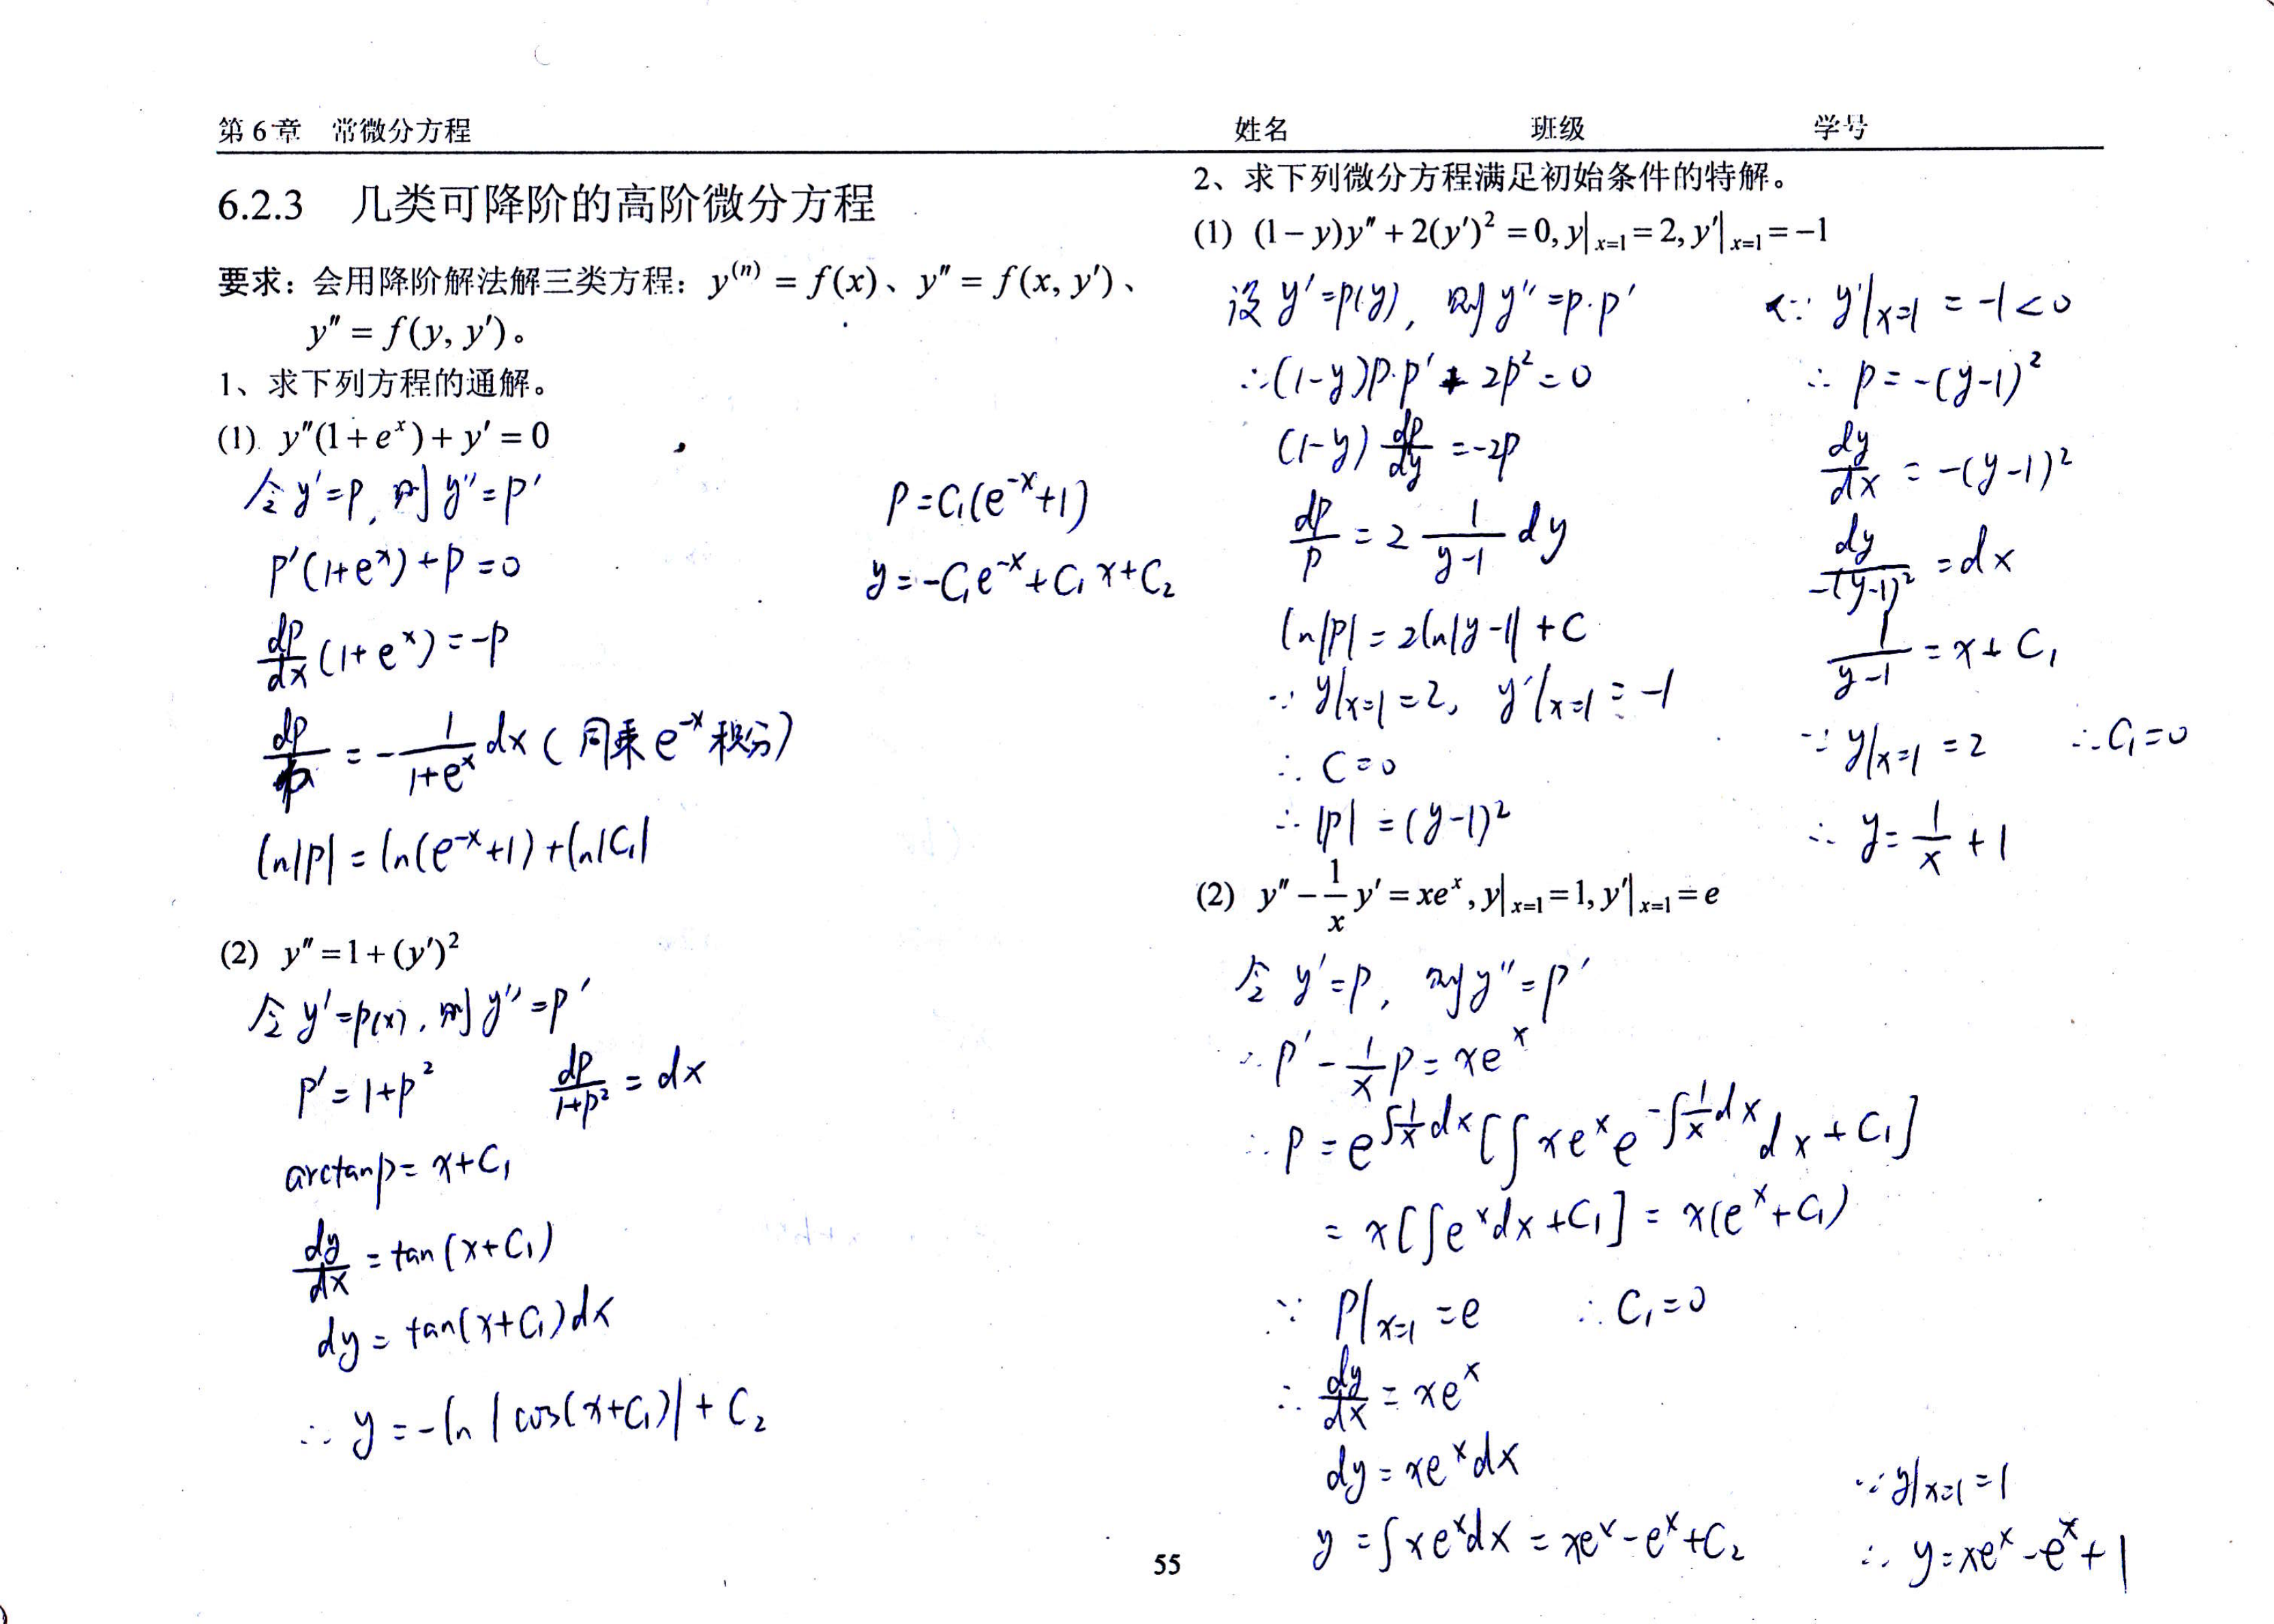 第 6 章 常微分方程 姓名 班级 学号
6.2.3 几类可降阶的高阶微分方程
要求：会用降阶解法解三类方程：y⁽ⁿ⁾ = f(x)、y″ = f(x, y′)、
y″ = f(y, y′)。
1、求下列方程的通解。
(1) y″(1+eˣ)+y′=0
令 y′=p, 则 y″=p′
p′(1+eˣ)+p=0
dp/dx (1+eˣ)=-p
dp/p = -1/(1+eˣ) dx (同乘 e⁻ˣ 积分)
ln|p| = ln(e⁻ˣ+1)+ln|C₁|
p=C₁(e⁻ˣ+1)
y=-C₁e⁻ˣ+C₁x+C₂
(2) y″=1+(y′)²
令 y′=p(x), 则 y″=p′
p′=1+p² dp/(1+p²) = dx
arctanp=x+C₁
dy/dx = tan(x+C₁)
dy = tan(x+C₁)dx
∴ y=-ln|cos(x+C₁)|+C₂
2、求下列微分方程满足初始条件的特解。
(1) (1-y)y″+2(y′)²=0, y|ₓ₌₁=2, y′|ₓ₌₁=-1
设 y′=p(y), 则 y″=p·p′
∴(1-y)p·p′+2p²=0
(1-y) dp/dy =-2p
dp/p = 2 1/(y-1) dy
ln|p|=2ln|y-1|+C
∵ y|ₓ₌₁=2, y′|ₓ₌₁=-1
∴ C=0
∴ |p|=(y-1)²
∵ y′|ₓ₌₁=-1<0
∴ p=-(y-1)²
dy/dx = -(y-1)²
dy/-(y-1)² = dx
1/(y-1) = x+C₁
∵ y|ₓ₌₁=2 ∴C₁=0
∴ y=1/x+1
(2) y″-1/x y′=xeˣ, y|ₓ₌₁=1, y′|ₓ₌₁=e
令 y′=p, 则 y″=p′
∴ p′-1/x p=xeˣ
∴ p=e^(∫1/x dx)[∫xeˣe^(-∫1/x dx)dx+C₁]
=x[∫eˣdx+C₁]=x(eˣ+C₁)
∵ p|ₓ₌₁=e ∴ C₁=0
∴ dy/dx=xeˣ
dy=xeˣdx
y=∫xeˣdx=xeˣ-eˣ+C₂
∵ y|ₓ₌₁=1
∴ y=xeˣ-eˣ+1
55